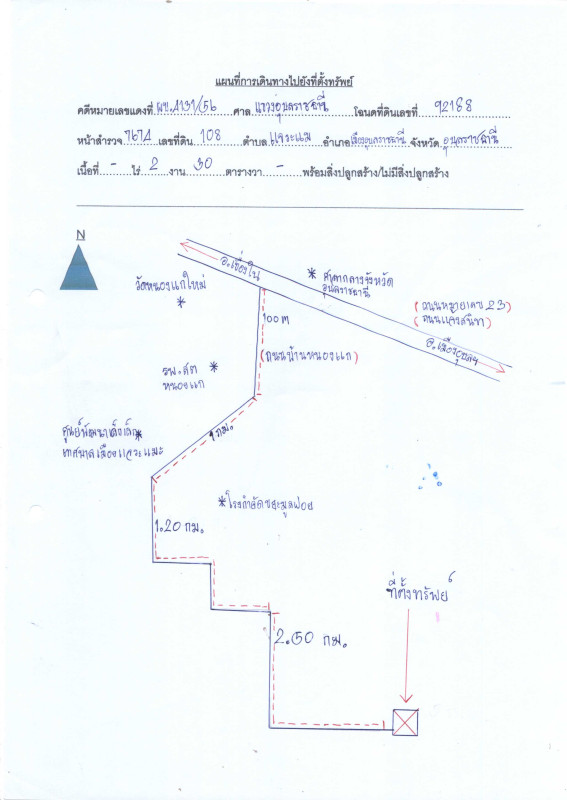 แผนที่การเดินทางไปยังที่ตั้งทรัพย์
คดีหมายเลขแดงที่ ผบ.A131/56 ศาล แขวงอุบลราชธานี โฉนดที่ดินเลขที่ 92168
หน้าสำรวจ 7674 เลขที่ดิน 108 ตำบล แจระแม อำเภอ เมืองอุบลราชธานี จังหวัด อุบลราชธานี
เนื้อที่ - ไร่ 2 งาน 30 ตารางวา - พร้อมสิ่งปลูกสร้าง/ไม่มีสิ่งปลูกสร้าง
N
อ.เขื่องใน
* ศาลากลางจังหวัด
อุบลราชธานี
วัดหนองแกใหม่
*
(ถนนหมายเลข 23)
(ถนนแจ้งสนิท)
100 m
อ.เมืองอุบลฯ
(ถนนบ้านหนองแก)
รพ.สต *
หนองแก
1 กม.
ศูนย์พัฒนาเด็กเล็ก *
เทศบาลเมืองแจระแมะ
* โรงกำจัดขยะมูลฝอย
1.20 กม.
ที่ตั้งทรัพย์
2.50 กม.